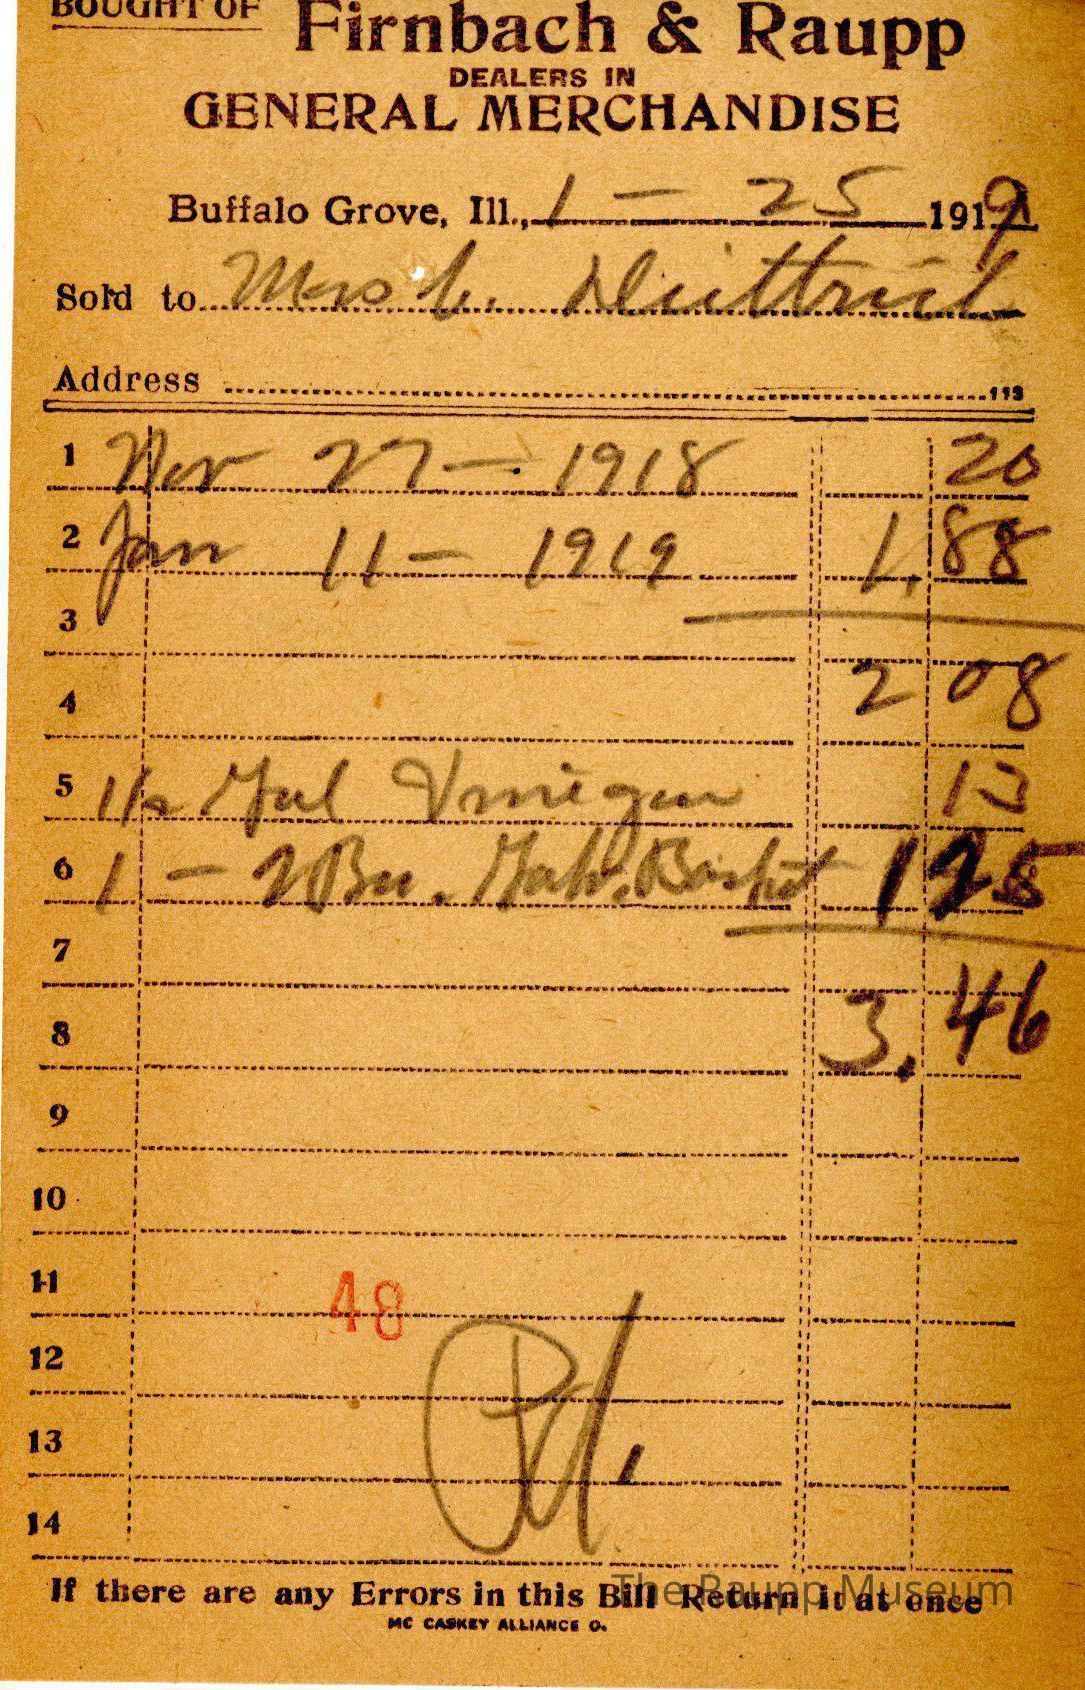 BOUGHT OF
Firnbach & Raupp
DEALERS IN
GENERAL MERCHANDISE
Buffalo Grove, Ill., 1 - 25 1919
Sold to Mrs C.
Address 113
1 Nov 27 - 1918 20
2 Jan 11 - 1919 1.88
3
4 2 08
5 1/2 Gal Vinegar 13
6 1 - 2 Bu. Galv. Basket 1 25
7
8 3.46
9
10
11 48
12
13
14
If there are any Errors in this Bill Return it at once
MC CASKEY ALLIANCE O.
The Raupp Museum